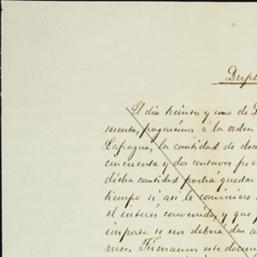 El dia treinta y uno de
sesenta, pagarémos á la orden
la cantidad de doc
cincuenta y dos centavos pe
dicha cantidad podrá quedar
tiempo si así le conviniere
el interés convenido, y que
importe si nos debera dar a
mes. Firmamos este docum